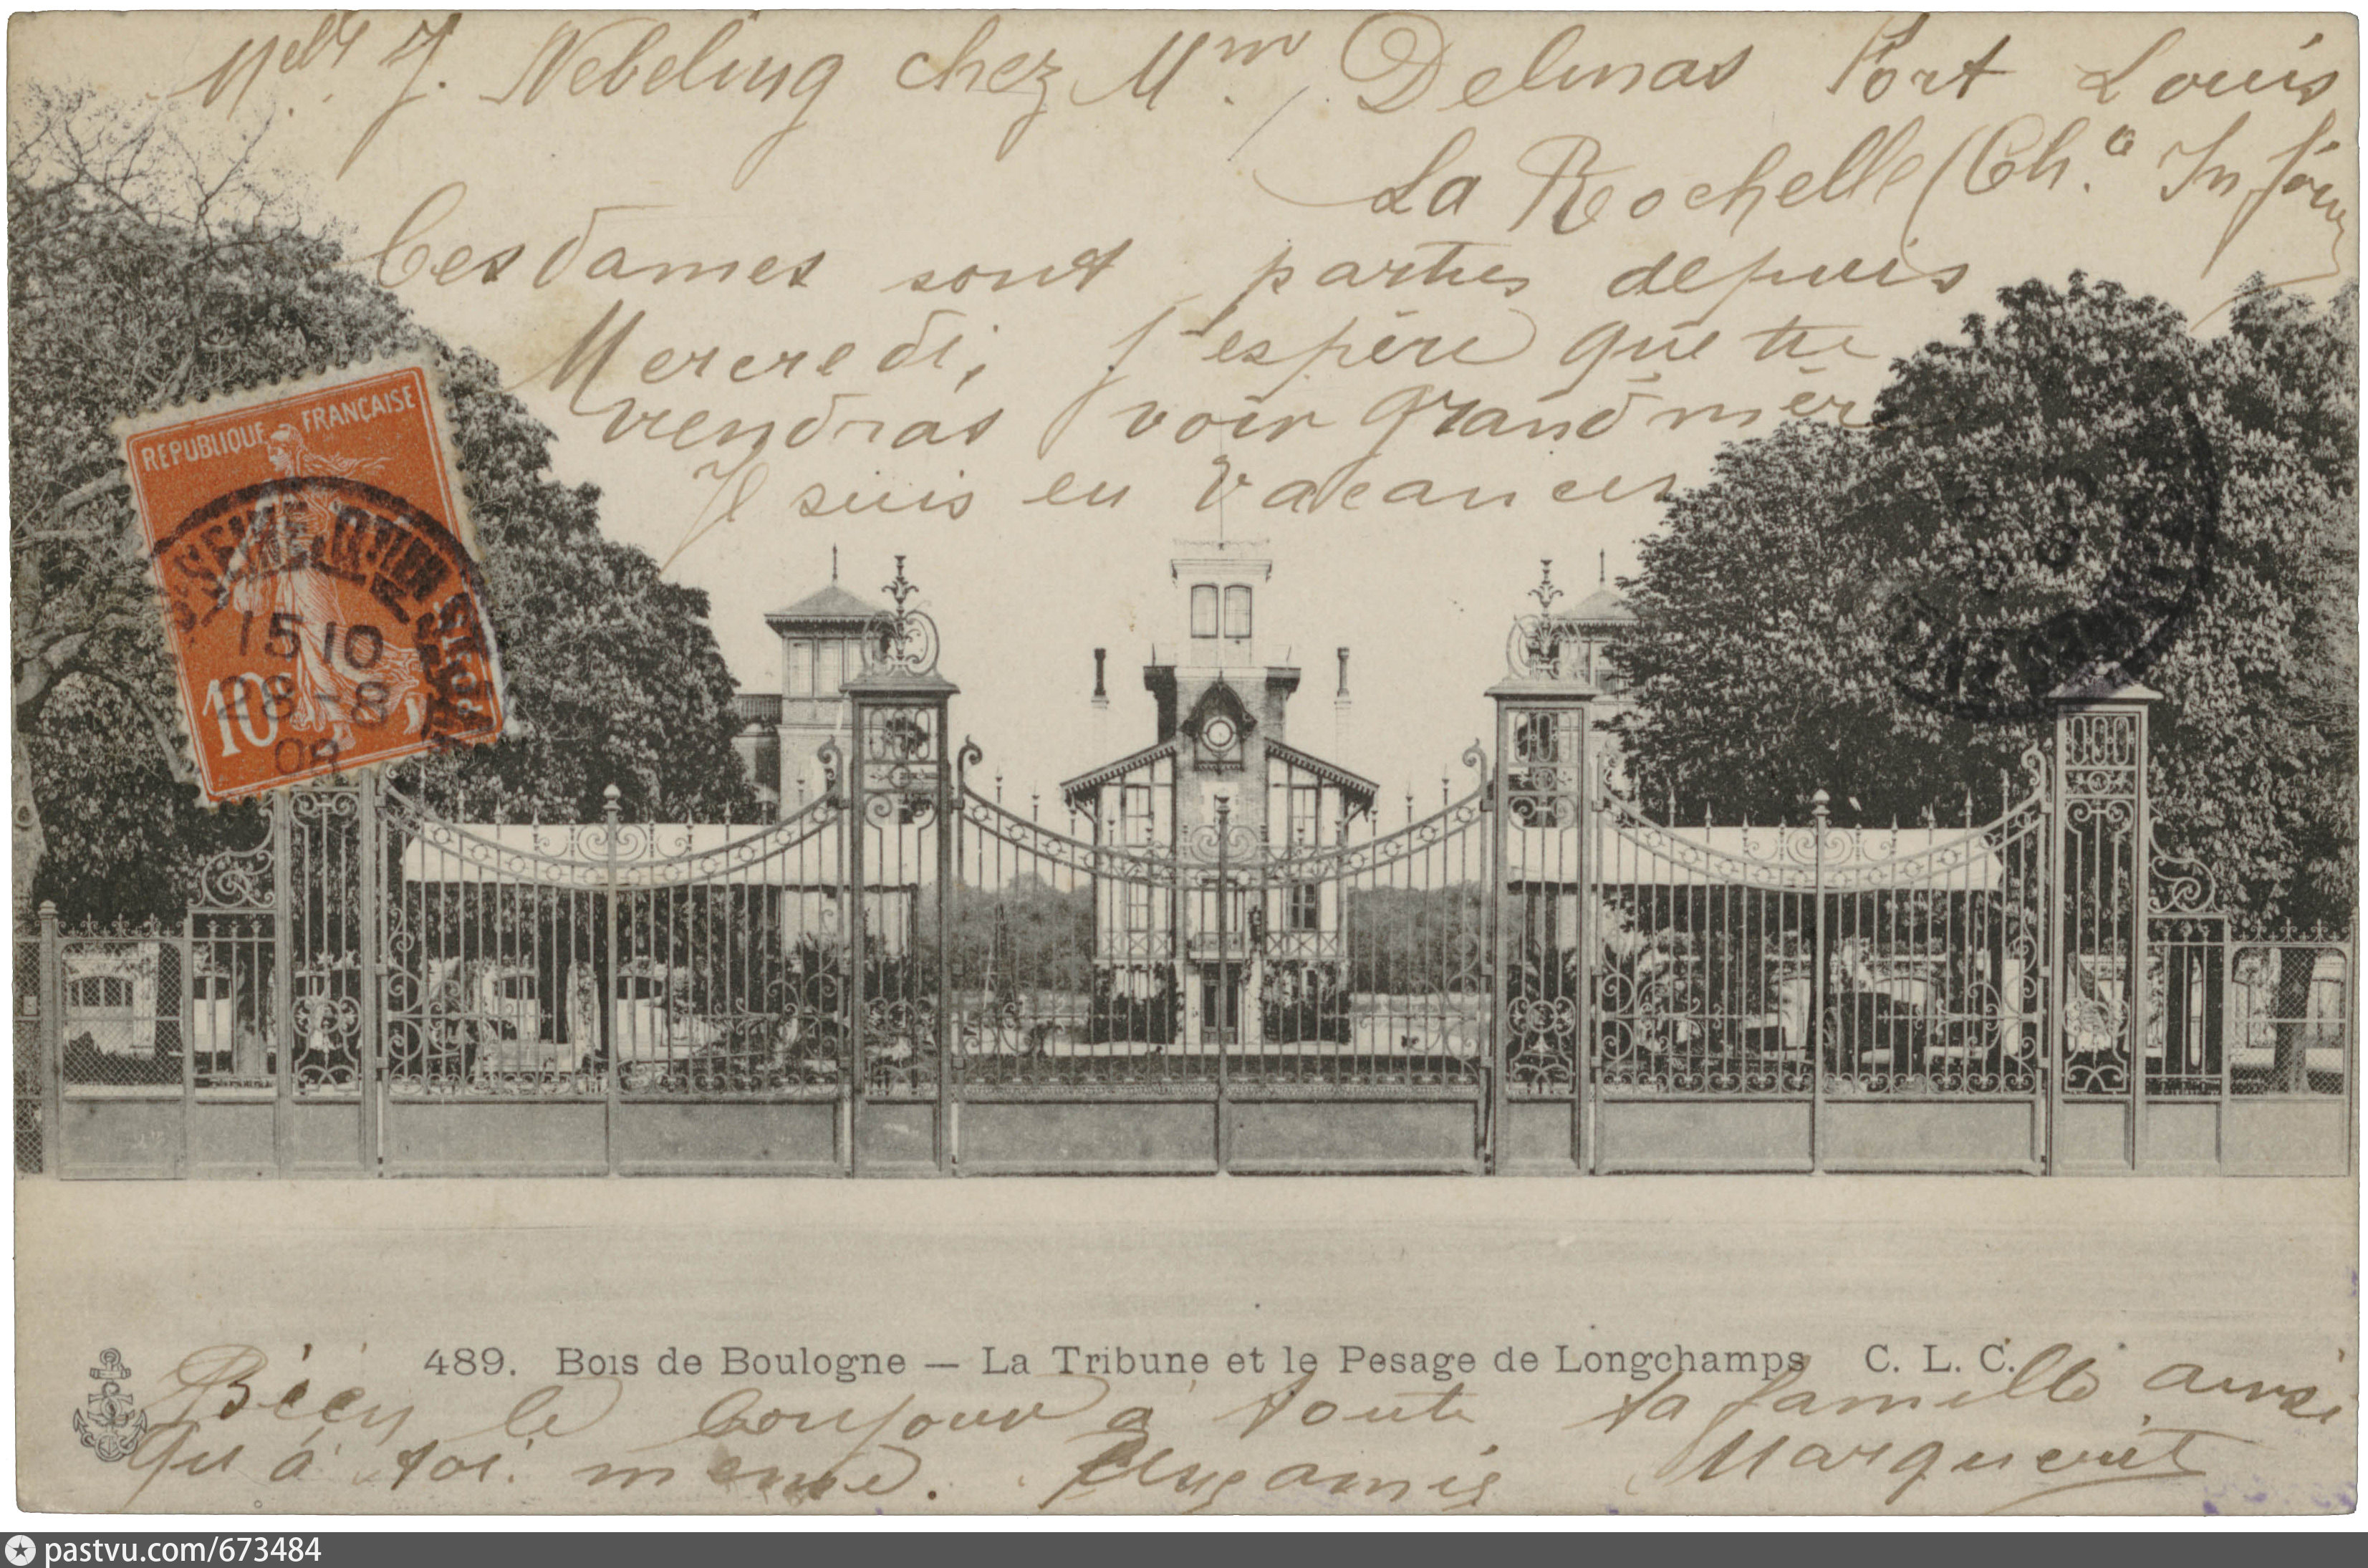 Melle J. Nebeling chez Mm Delmas Port Louis
La Rochelle (Ch.te Infér
Ces dames sont parties depuis
Mercredi, J'espère que tu
viendras voir grand mère
Je suis en vacances
REPUBLIQUE FRANÇAISE
15 10
28-8
08
10c
489. Bois de Boulogne — La Tribune et le Pesage de Longchamps C. L. C.
Bien le bonjour à toute ta famille ainsi
qu'à toi même. Marguerite
pastvu.com/673484